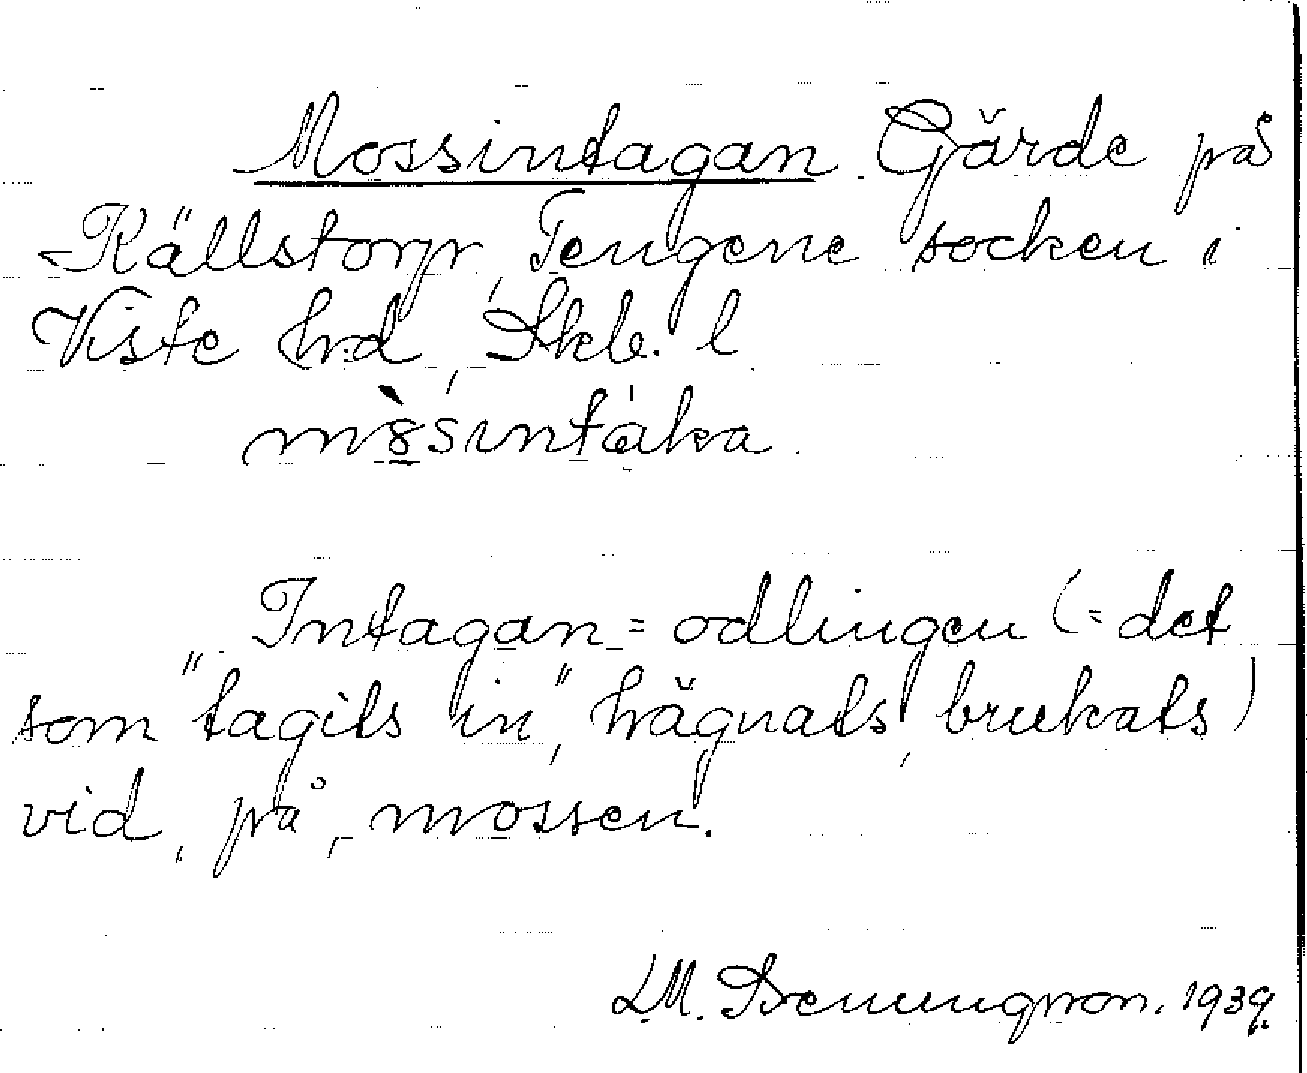 Mossintagan. Gärde på
Källstorp, Tengene socken i
Viste hrd, Skb. l

Intagan = odlingen (= det
som "tagits in", hägnats, brukats)
vid, på, mossen.
L.M. 1939.